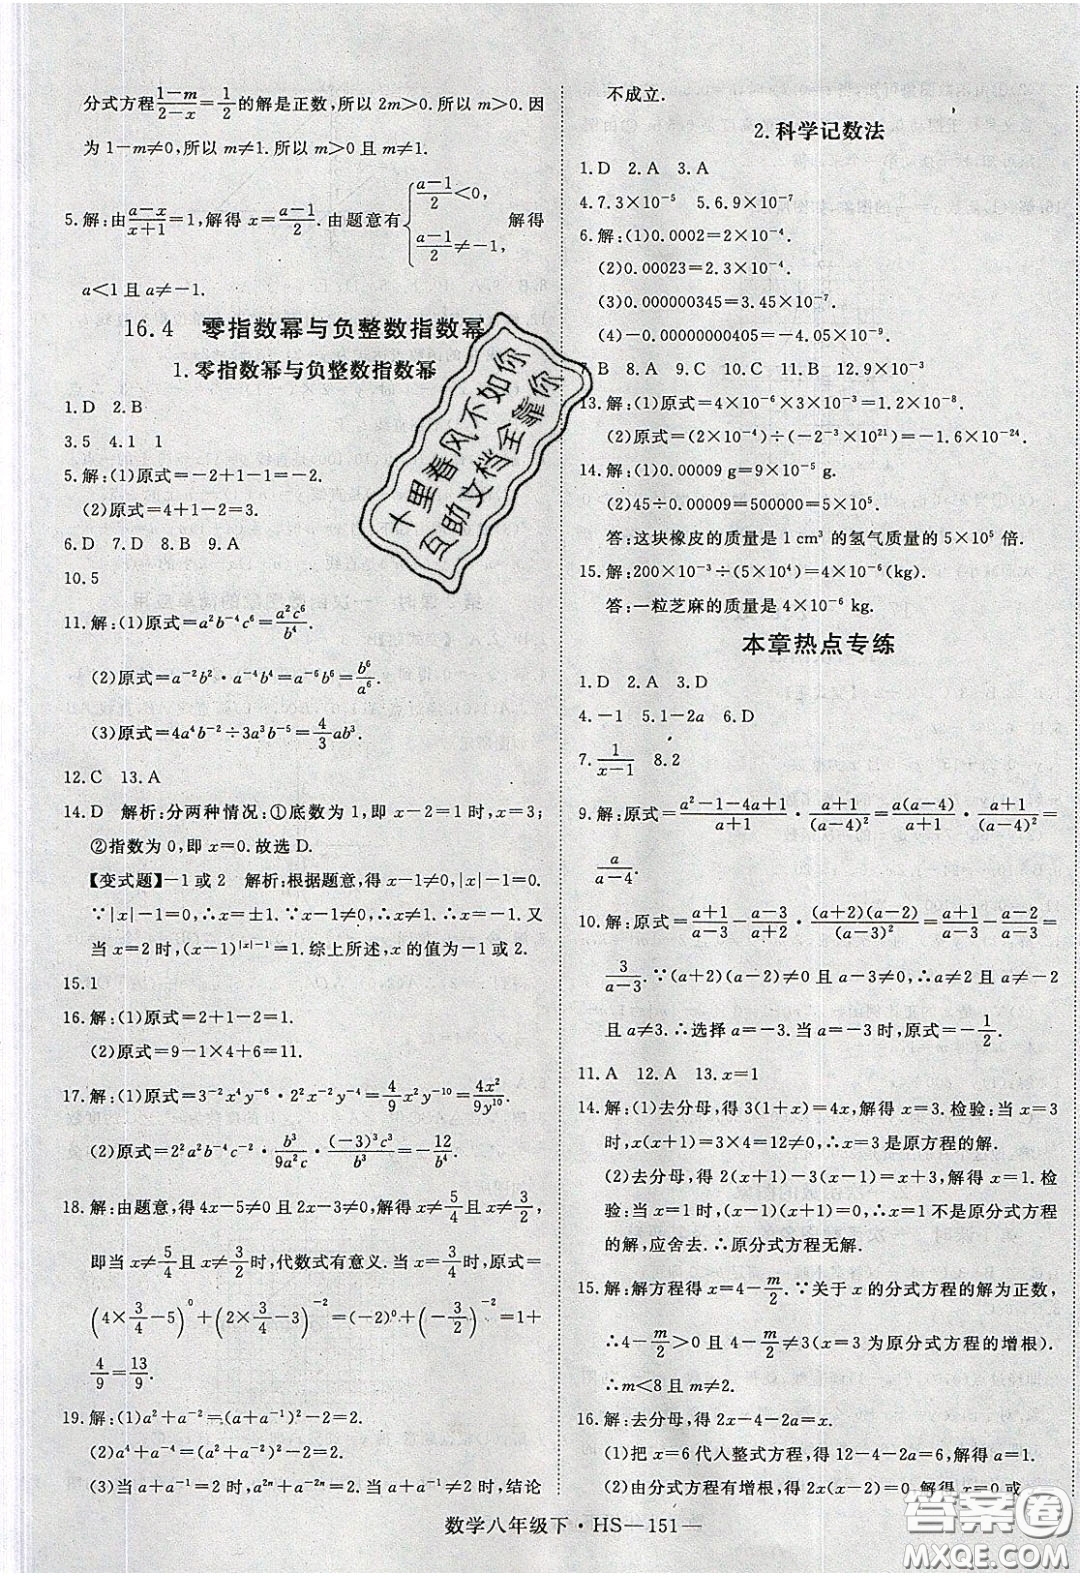 分式方程(1-m)/(2-x)=1/2的解是正数,所以 2m>0.所以 m>0.因
为 1-m≠0,所以 m≠1.所以 m>0 且 m≠1.
5.解:由(a-x)/(x+1)=1,解得 x=(a-1)/2.由题意有{(a-1)/2<0, (a-1)/2≠-1, 解得
a<1 且 a≠-1.
16.4 零指数幂与负整数指数幂
1.零指数幂与负整数指数幂
1.D 2.B
3.5 4.1 1
5.解:(1)原式=-2+1-1=-2.
(2)原式=4+1-2=3.
6.D 7.D 8.B 9.A
10.5
11.解:(1)原式=a²b⁻⁴c⁶=a²c⁶/b⁴.
(2)原式=a⁻²b²·a⁻⁴b⁴=a⁻⁶b⁶=b⁶/a⁶.
(3)原式=4a⁴b⁻²÷3a³b⁻⁵=4/3 ab³.
12.C 13.A
14.D 解析:分两种情况:①底数为 1,即 x-2=1 时,x=3;
②指数为 0,即 x=0.故选 D.
【变式题】-1 或 2 解析:根据题意,得 x-1≠0,|x|-1=0.
∵|x|-1=0,∴x=±1.∵x-1≠0,∴x≠1,∴x=-1.又
当 x=2 时,(x-1)^(|x|-1)=1.综上所述,x 的值为-1 或 2.
15.1
16.解:(1)原式=2+1-2=1.
(2)原式=9-1×4+6=11.
17.解:(1)原式=3⁻²x⁴y⁻⁶·2²x⁻²y⁻⁴=4/9 x²y⁻¹⁰=4x²/9y¹⁰.
(2)原式=2²a²b⁻⁴c⁻²·b³/9a²c·(-3)³c³/b³=-12/b⁴.
18.解:由题意,得 4x-5≠0 且 2x-3≠0,解得 x≠5/4且 x≠3/2,
即当 x≠5/4且 x≠3/2时,代数式有意义.当 x=3/4时,原式=
(4×3/4-5)⁰+(2×3/4-3)⁻²=(-2)⁰+(-3/2)⁻²=1+
4/9=13/9.
19.解:(1)a²+a⁻²=(a+a⁻¹)²-2=2.
(2)a⁴+a⁻⁴=(a²+a⁻²)²-2=2.
(3)当 a+a⁻¹=2 时,a²ⁿ+a⁻²ⁿ=2.当 a+a⁻¹=3 时,结论
不成立.
2.科学记数法
1.D 2.A 3.A
4.7.3×10⁻⁵ 5.6.9×10⁻⁷
6.解:(1)0.0002=2×10⁻⁴.
(2)0.00023=2.3×10⁻⁴.
(3)0.000000345=3.45×10⁻⁷.
(4)-0.00000000405=-4.05×10⁻⁹.
7.B 8.A 9.C 10.C 11.A 12.9×10⁻³
13.解:(1)原式=4×10⁻⁶×3×10⁻³=1.2×10⁻⁸.
(2)原式=4×10⁻⁴÷(-2⁻³×10²¹)=-1.6×10⁻²⁴.
14.解:(1)0.00009 g=9×10⁻⁵g.
(2)45÷0.00009=500000=5×10⁵.
答:这块橡皮的质量是 1 cm³的氢气质量的 5×10⁵ 倍.
15.解:200×10⁻³÷(5×10⁴)=4×10⁻⁶(kg).
答:一粒芝麻的质量是 4×10⁻⁶ kg.
本章热点专练
1.D 2.A 3.D
4.-1 5.1-2a 6.D
7.1/(x-1) 8.2
9.解:原式=(a²-1-4a+1)/(a+1)·(a+1)/(a-4)²=a(a-4)/(a+1)·(a+1)/(a-4)²=
a/(a-4).
10.解:原式=(a+1)/(a-3)-(a-3)/(a+2)·(a+2)(a-2)/(a-3)²=(a+1)/(a-3)-(a-2)/(a-3)=
3/(a-3).∵(a+2)(a-2)≠0 且 a-3≠0,∴a≠±2
且 a≠3.∴选择 a=-3.当 a=-3 时,原式=-1/2.
11.A 12.A 13.x=1
14.解:(1)去分母,得 3(1+x)=4x,解得 x=3.检验:当 x=3
时,x(x+1)=3×4=12≠0,∴x=3 是原方程的解.
(2)去分母,得 2(x+1)-3(x-1)=x+3,解得 x=1.检
验:当 x=1 时,(x-1)(x+1)=0,∴x=1 不是原分式方程
的解,应舍去.∴原分式方程无解.
15.解:解方程得 x=4-m/2.∵关于 x 的分式方程的解为正数,
∴4-m/2>0 且 4-m/2≠3(x=3 为原分式方程的增根).
∴m<8 且 m≠2.
16.解:去分母,得 2x-4-2a=x.
(1)把 x=6 代入整式方程,得 12-4-2a=6,解得 a=1.
(2)由分式方程的增根,得 x(x-2)=0.解得 x=0 或
数学八年级下·HS—151—
十里春风不如你
互助文档全靠你
答案圈
MXQE.COM